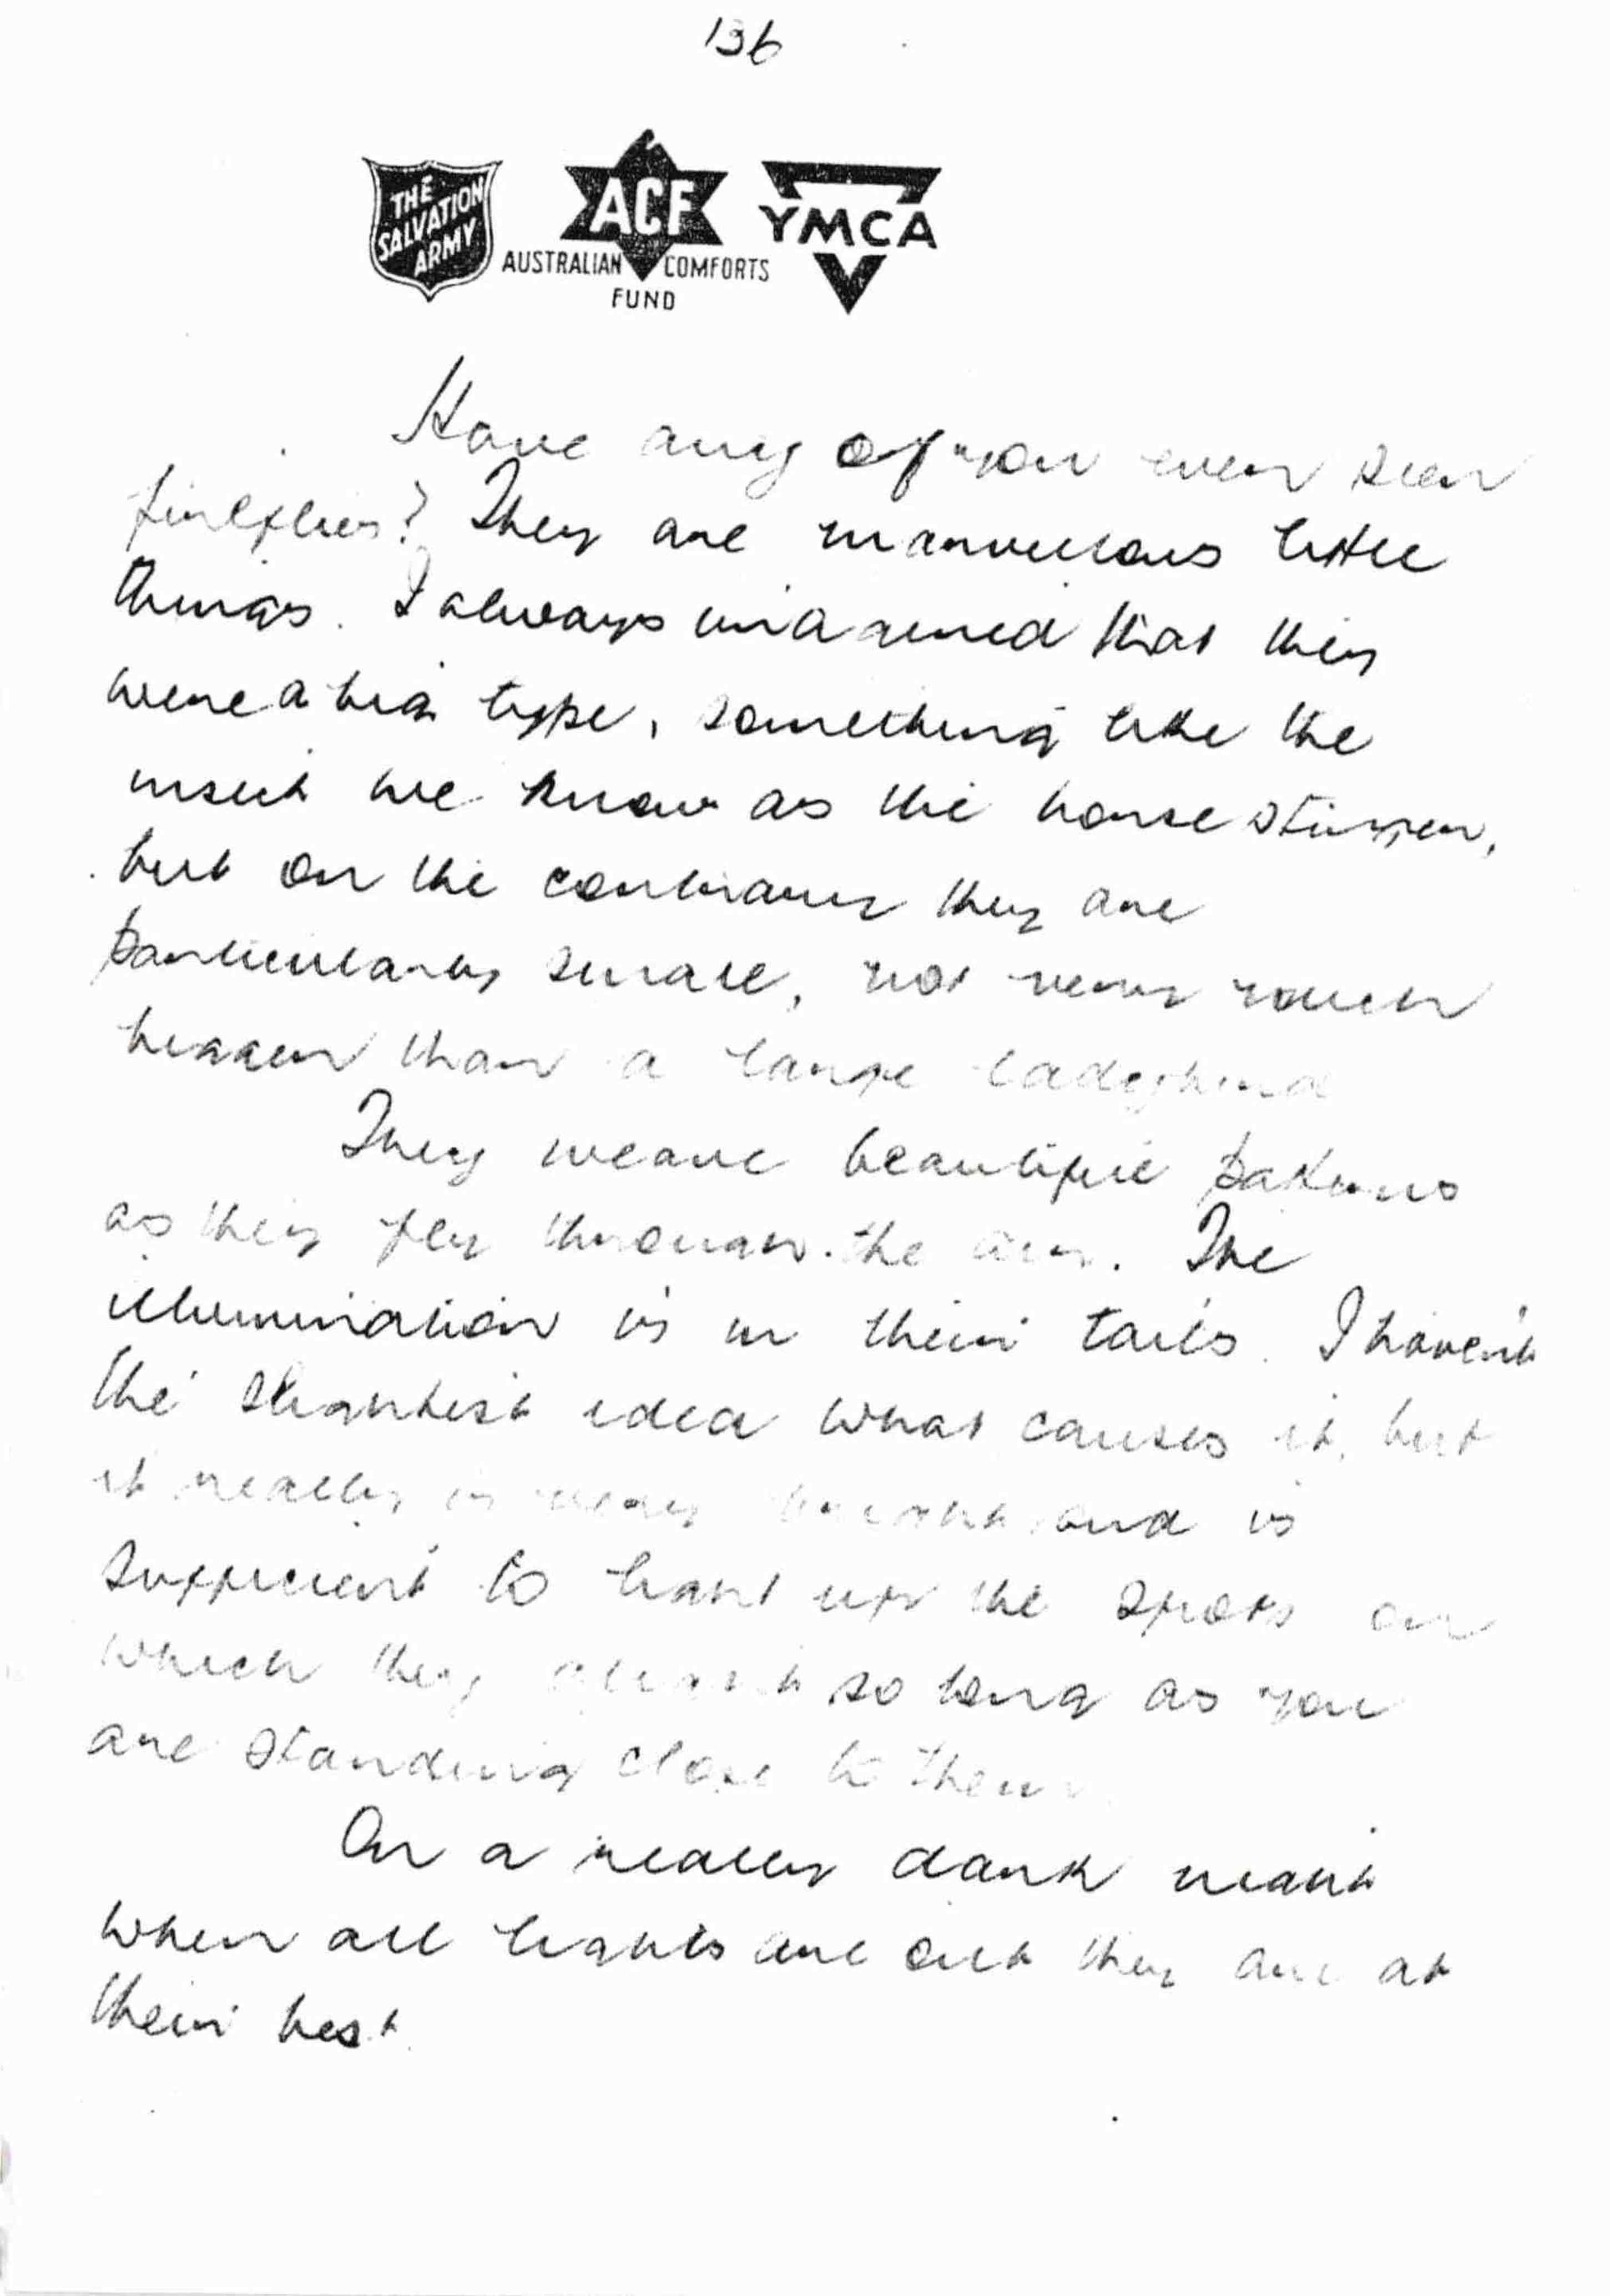 136
THE
SALVATION
ARMY
ACF
AUSTRALIAN COMFORTS
FUND
YMCA
Have any of you ever seen
fireflies? They are marvellous little
things. I always imagined that they
were a big type, something like the
insect we know as the horse stinger,
but on the contrary they are
particularly small, not very much
bigger than a large ladybird
They weave beautiful patterns
as they fly through the air. The
illumination is in their tails. I haven't
the slightest idea what causes it, but
it really is very bright and is
sufficient to light up the spots on
which they alight so long as you
are standing close to them
On a really dark night
when all lights are out they are at
their best.